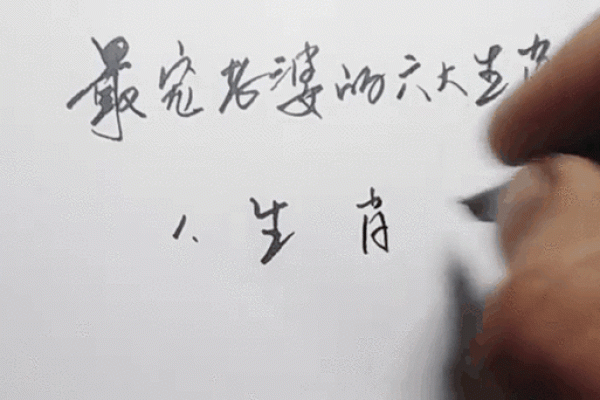 最宠老婆的六大生肖
1.生肖